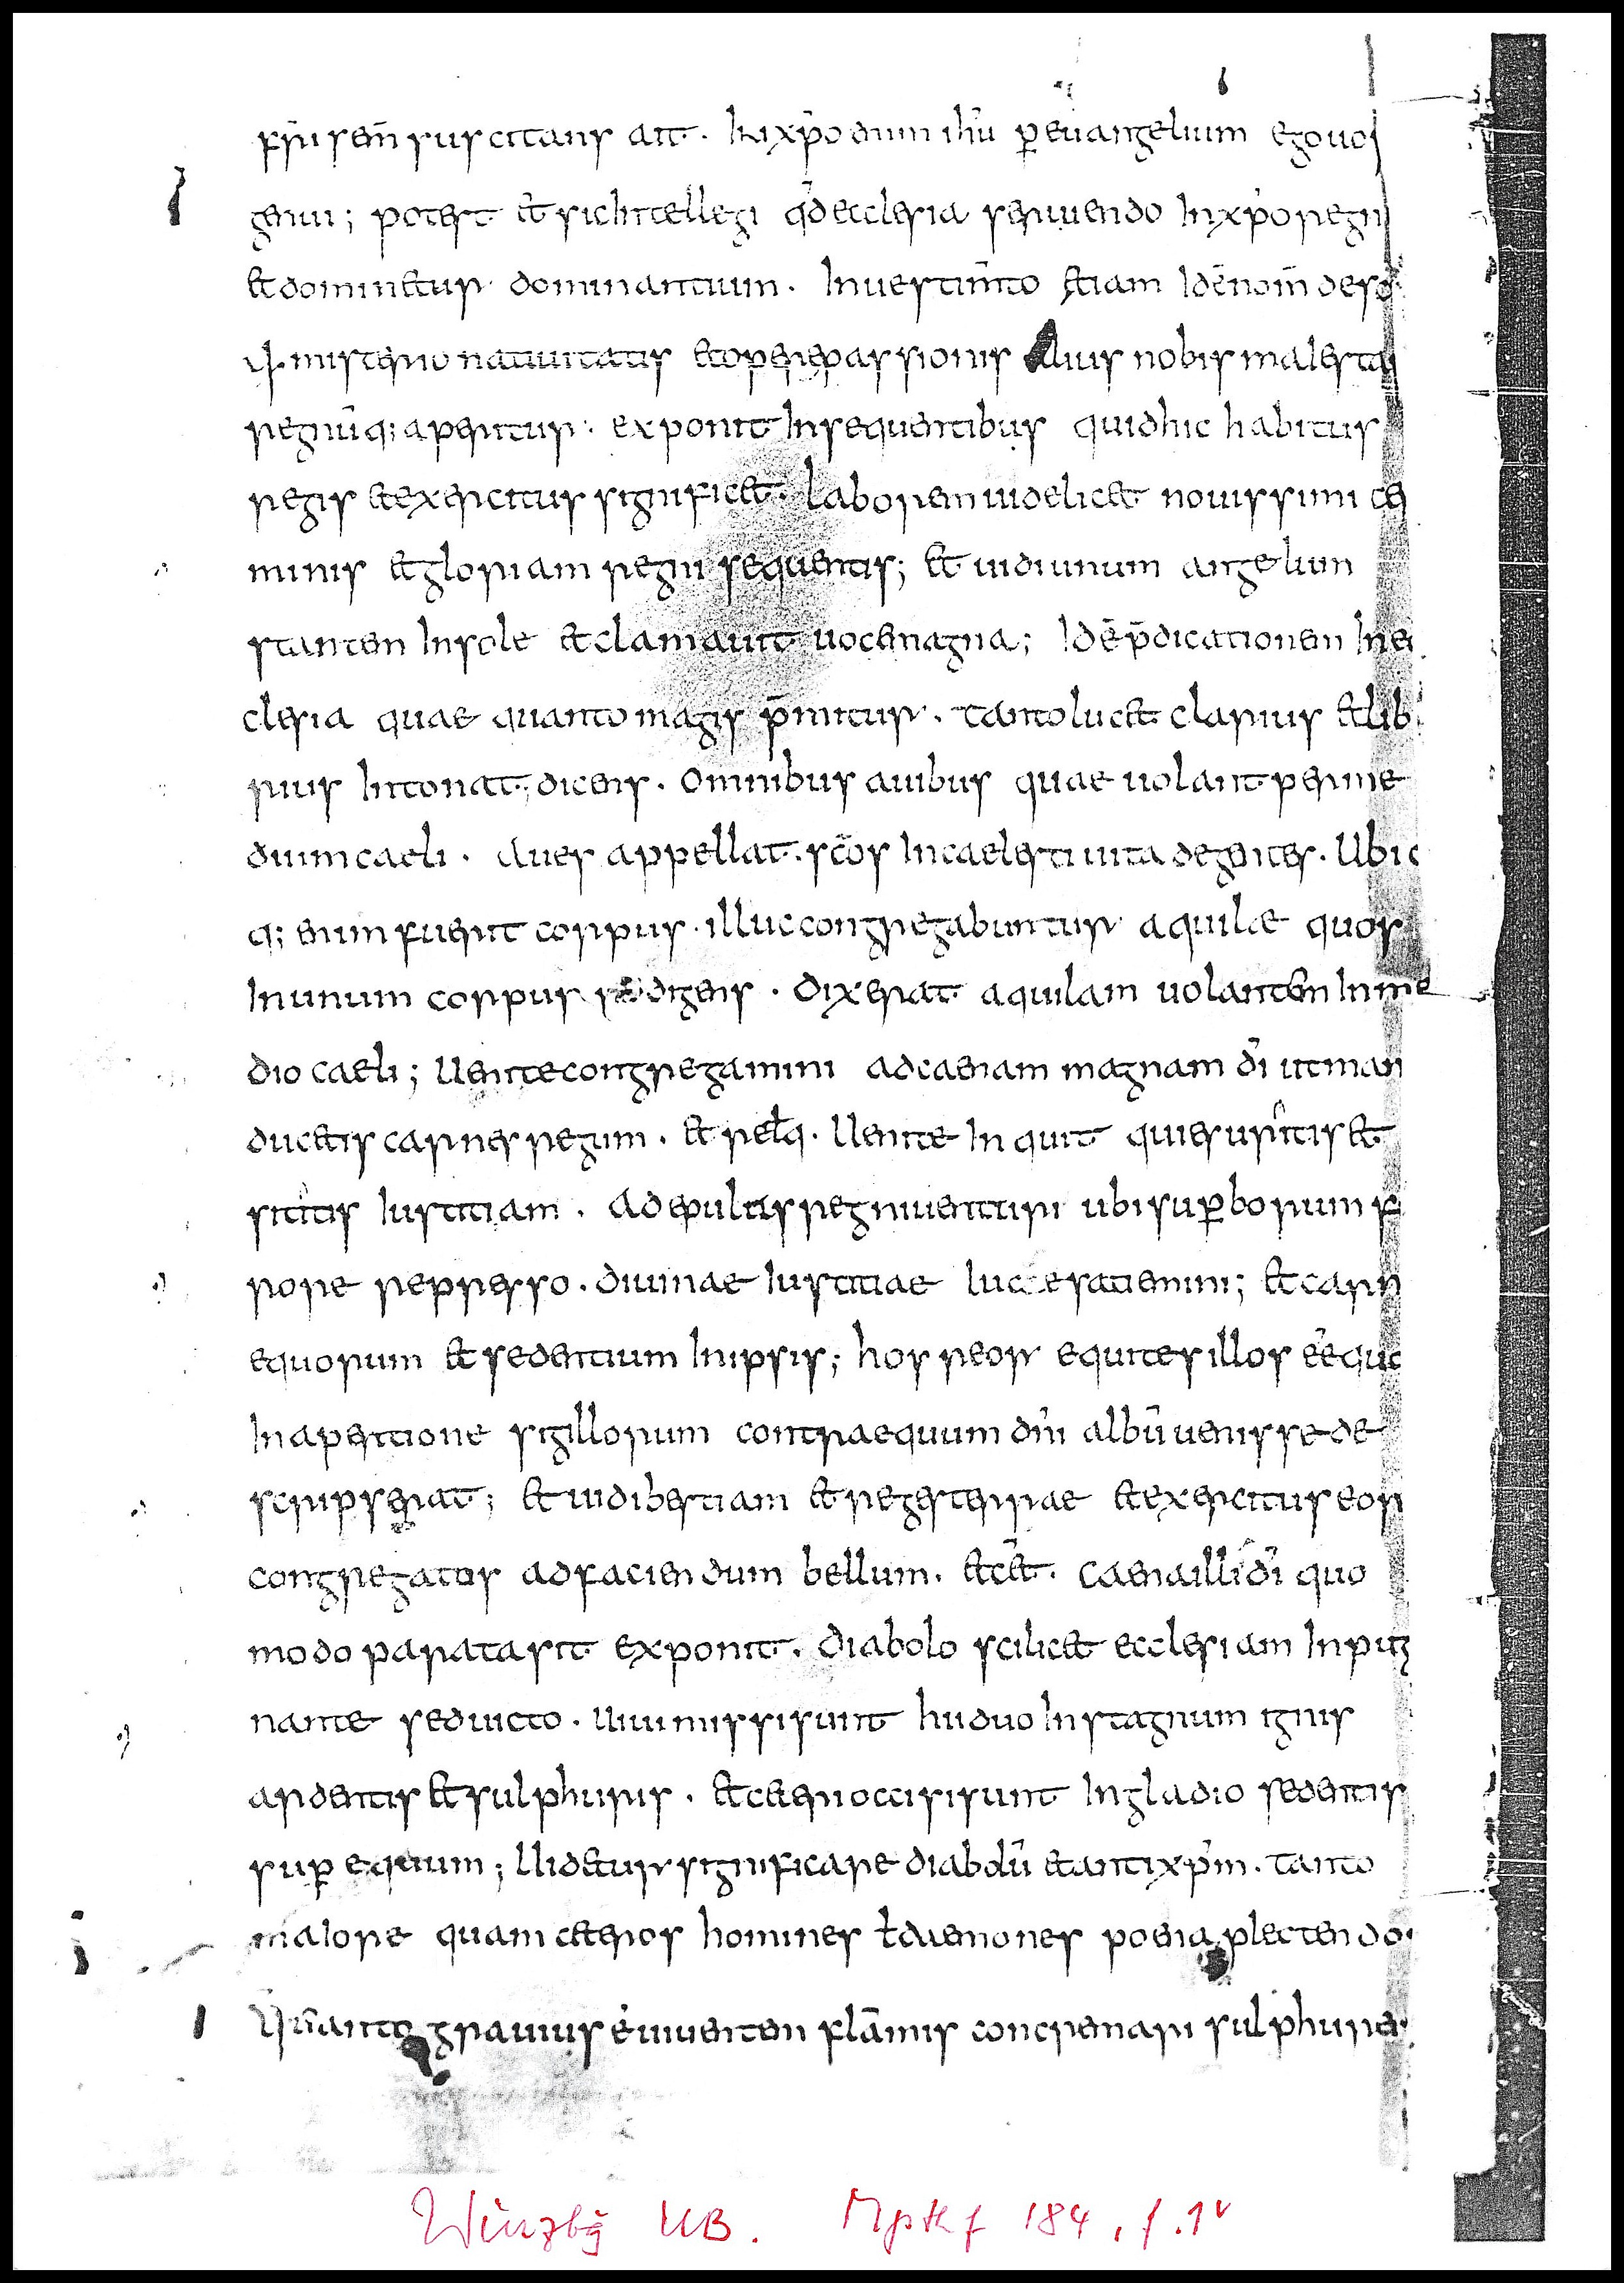 frĩ sem̄ suscitans ait. In xp̄o dum ihū p̄ euangelium ego uos
genui; potest et sic intellegi qd̄ ecclesia seruiendo in xp̄o regn
et dominetur dominantium. In uestim̄to etiam idē nom̄ desc
misterio natiuitatis et ope passionis eius nobis maiestas
regnūq; aperitur. exponit in sequentibus quid hic habitus
regis et exercitus significet. laborem uidelicet nouissimi cer
minis et gloriam regni sequentis; et uidi unum angelum
stantem in sole et clamauit uoce magna; id ē p̄dicationem in ec
clesia quae quanto magis p̄mitur. tanto lucet clarius et lib
rius intonat; dicens. omnibus auibus quae uolant per me
dium caeli. aues appellat. sc̄os in caelesti uita degentes. Ubic
q; enim fuerit corpus. illuc congregabuntur aquilae quos
in unum corpus redigens. dixerat aquilam uolantem in me
dio caeli; Uenite congregamini ad caenam magnam dī ut man
ducetis carnes regum. et relq. Uenite inquit qui esuritis et
sititis iustitiam. ad epulas regni uenturi ubi superborum fu
rore represso. diuinae iustitiae luce satiemini; et carn
equorum et sedentium in ipsis; hos reor equites illos et equo
in apertione sigillorum contra equum dn̄i albū uenisse de
scripserat; et uidi bestiam et reges terrae et exercitus eor
congregatos ad faciendum bellum. et cet̄. caena illi dī quo
modo parata sit exponit. diabolo scilicet ecclesiam inpug
nante se deuicto. Uiui missi sunt hii duo in stagnum ignis
ardentis et sulphuris. et ceteri occisi sunt in gladio sedentis
sup̄ equum; Uidetur significare diabolū et antixp̄m. tanto
maiore quam ceteros homines ł daemones poena plectendos
Quanto grauius ē uiuentem flāmis concremari sulphureis
Würzbg UB. Mpthf 184, f. 1v